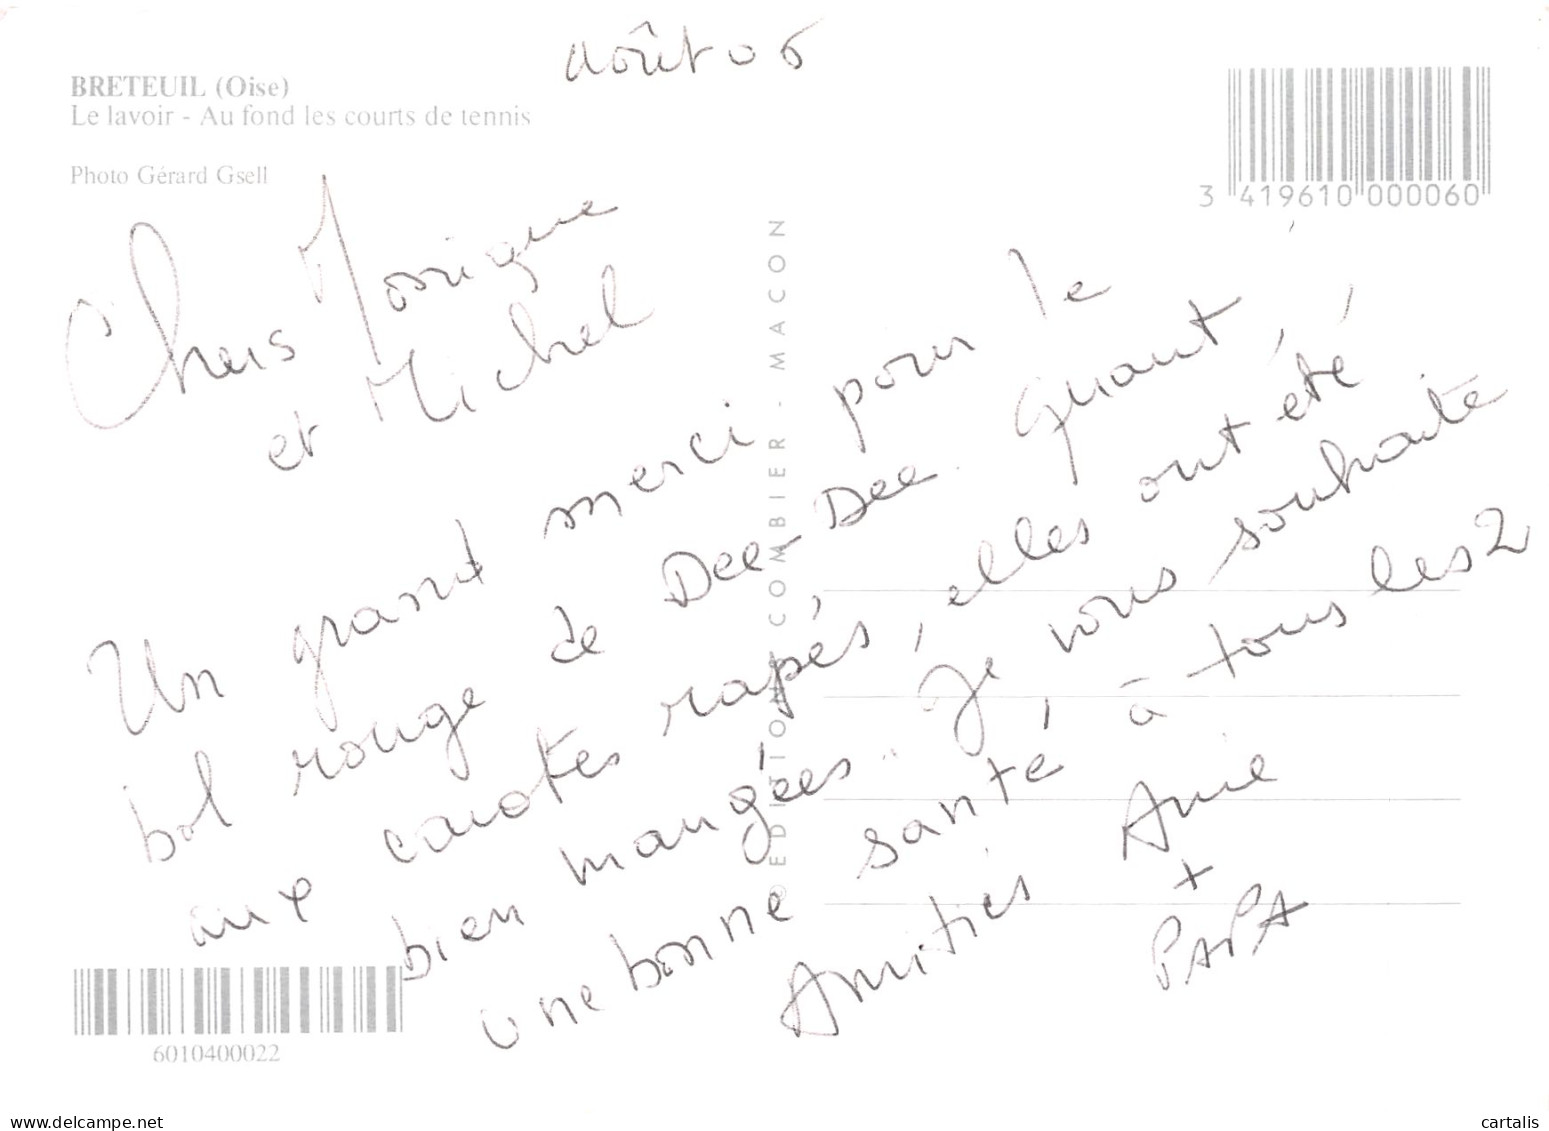 août 06
BRETEUIL (Oise)
Le lavoir - Au fond les courts de tennis
Photo Gérard Gsell
3 419610 000060
Chers
et Michel
Un grand merci pour le
bol rouge de Dee-Dee. Quant
aux carottes rapés, elles ont été
bien mangées. Je vous souhaite
une bonne santé, à tous les 2
Amitiés Annie
+
PAPA
EDITIONS COMBIER - MACON
6010400022
www.delcampe.net
cartalis